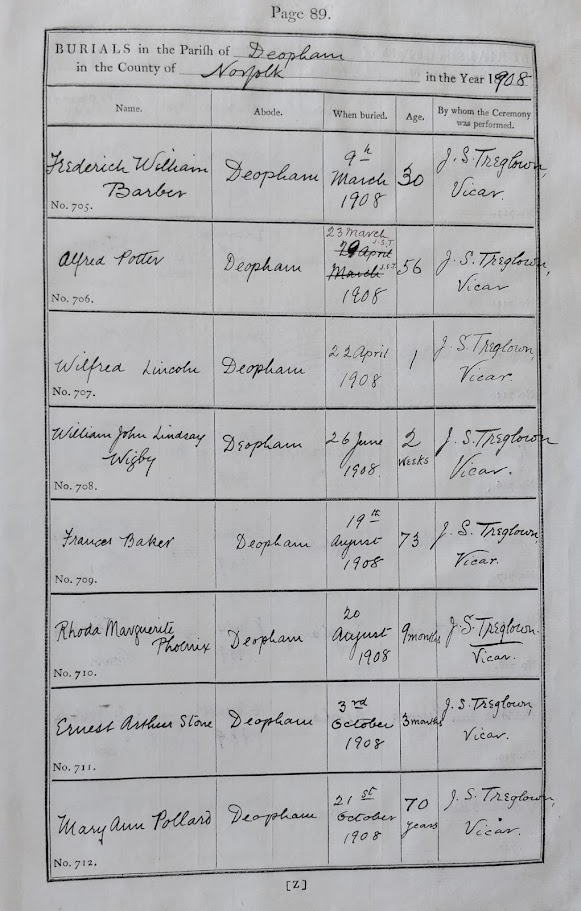 Page 89.
BURIALS in the Parish of Deopham
in the County of Norfolk in the Year 1908
Name. Abode. When buried. Age. By whom the Ceremony was performed.
Frederick William
Barber
No. 705.
Deopham
9th
March
1908
30
J. S. Treglown,
Vicar.
Alfred Potter
No. 706.
Deopham
23 March
29 April J.S.T.
March J.S.T.
1908
56
J. S. Treglown,
Vicar
Wilfred Lincoln
No. 707.
Deopham
22 April
1908
1
J. S. Treglown,
Vicar.
William John Lindsay
Wigby
No. 708.
Deopham
26 June
1908.
2
WEEKS
J. S. Treglown
Vicar.
Frances Baker
No. 709.
Deopham
19th
August
1908
73
J. S. Treglown,
Vicar.
Rhoda Marguerite
Phoenix
No. 710.
Deopham
20
August
1908
9 months
J. S. Treglown.
Vicar.
Ernest Arthur Stone
No. 711.
Deopham
3rd
October
1908
3 months
J. S. Treglown,
Vicar.
Mary Ann Pollard
No. 712.
Deopham
21st
October
1908
70
years
J. S. Treglown,
Vicar.
[Z]